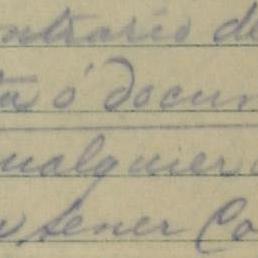 ntrario de
ta ó docum
ualquier
tener Co